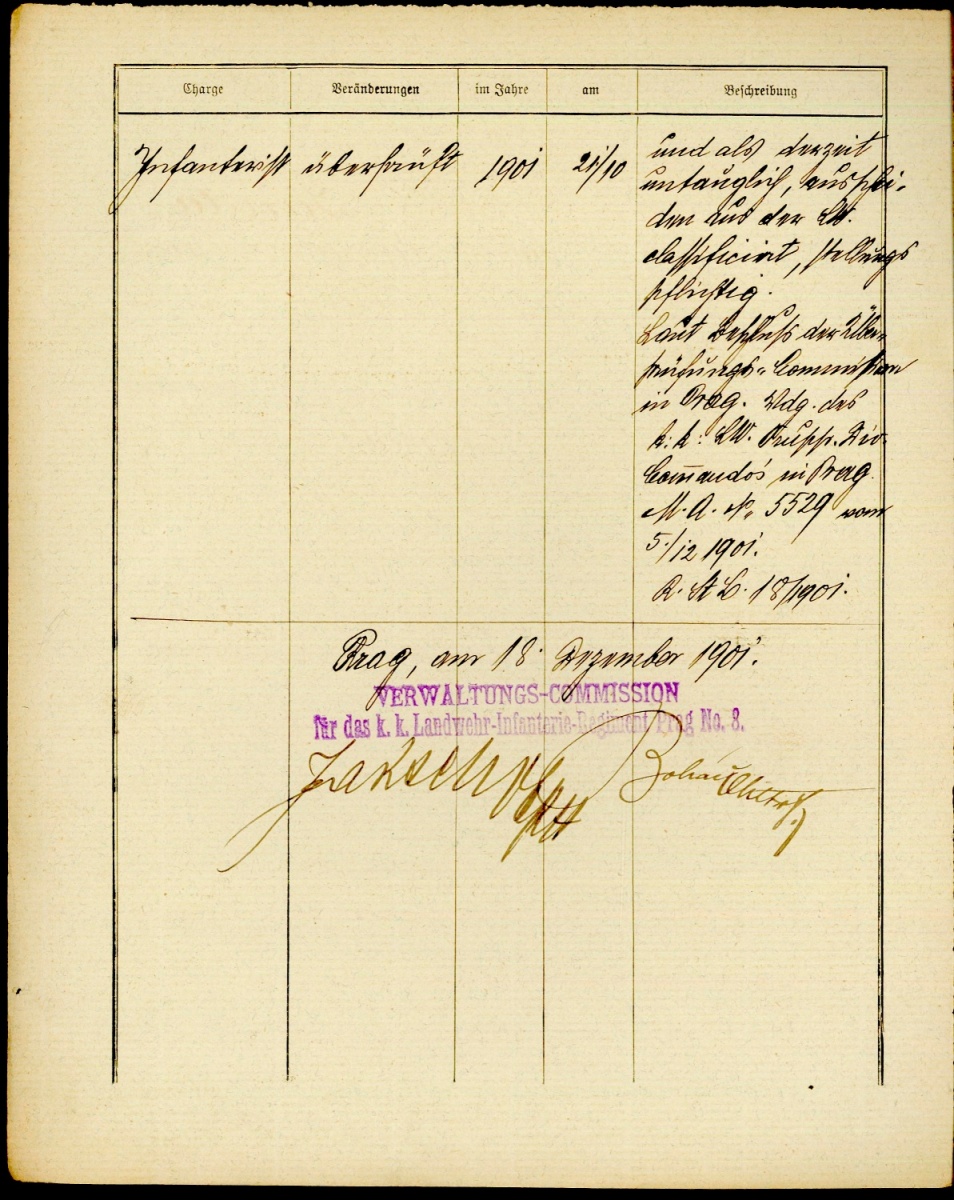 Charge Veränderungen im Jahre am Beschreibung
Infanterist überprüft 1901 21/10 und als derzeit
untauglich, ausschei-
den aus der LW.
classificirt, stellungs
pflichtig.
Laut Beschluß der Über-
prüfungs-Commission
in Prag. Vdg. des
k: k: LW. Trupp. Div.
Comando's in Prag
M. A. No 5529 vom
5./12 1901.
R. St. B. 18/1901.
Prag, am 18. Dezember 1901.
VERWALTUNGS-COMMISSION
für das k. k. Landwehr-Infanterie-Regiment Prag No. 8.